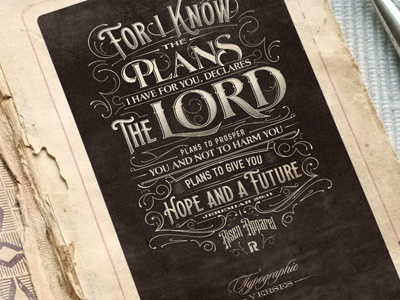 For I Know
THE
PLANS
I HAVE FOR YOU, DECLARES
THE LORD
PLANS TO PROSPER
YOU AND NOT TO HARM YOU
PLANS TO GIVE YOU
HOPE AND A FUTURE
JEREMIAH 29:11
Risen Apparel
R
Typographic
VERSES